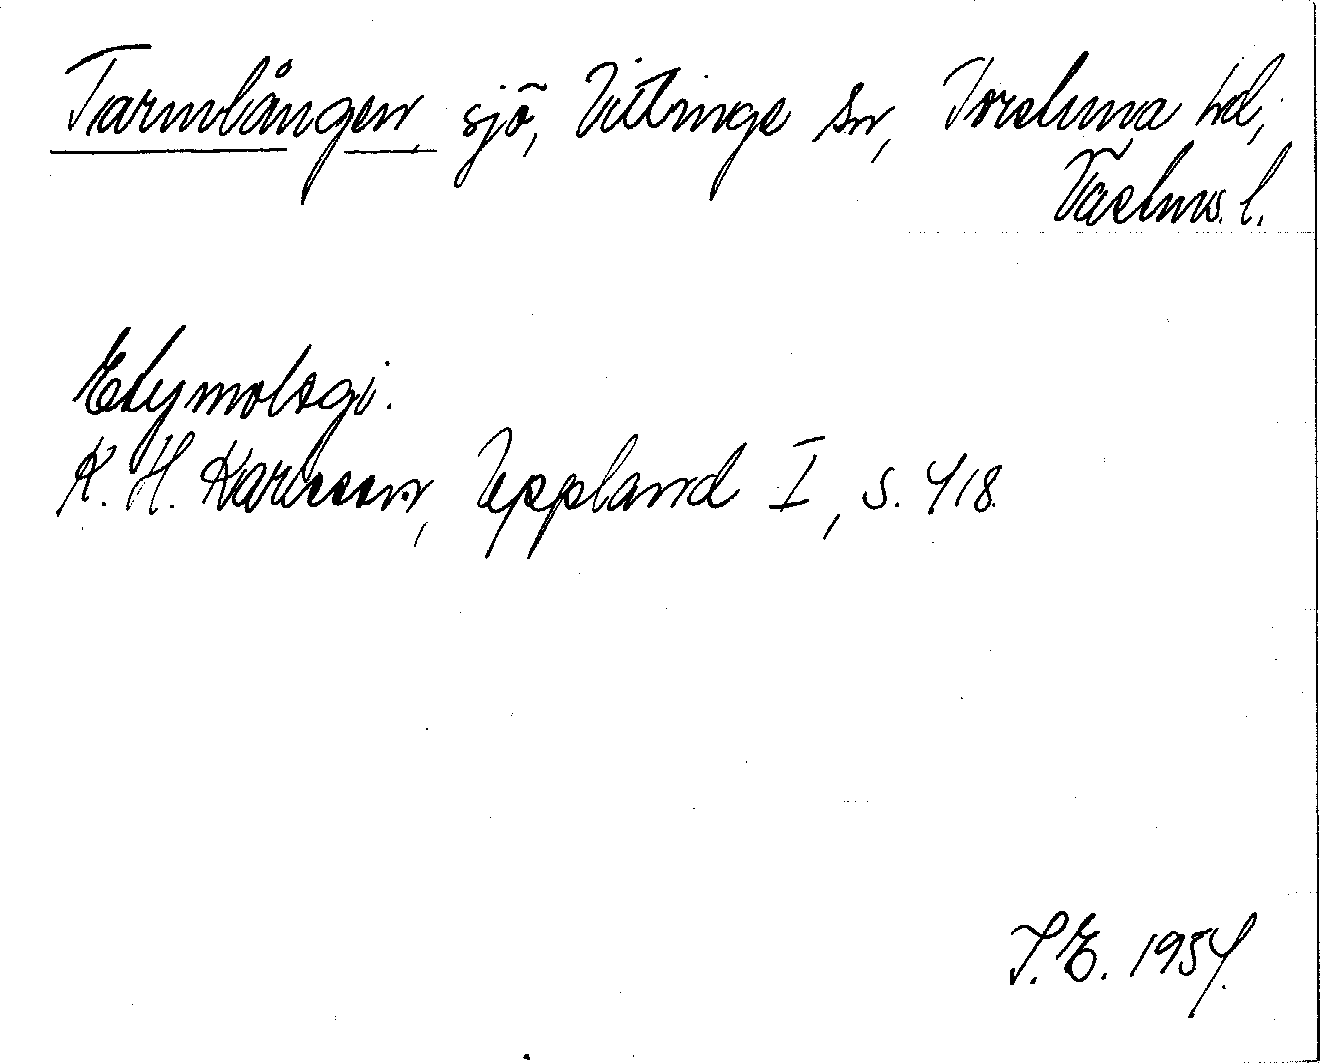 Tarmlången, sjö, Vittinge sn, Torstuna hd,
Västms. l.
Etymologi.
K. H. Karlsson, Uppland I, s. 418.
I.E. 1954.